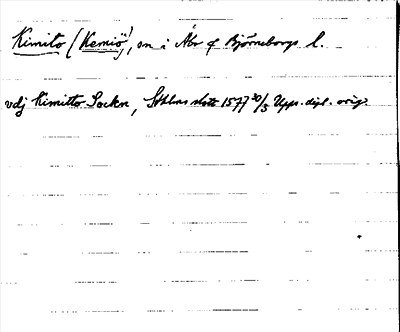 Kimito (Kemiö), sn i Åbo o Björneborgs l.
vdj Kimitto Sockn, Sthlms slott 1577 30/3 Upps. dipl. orig.